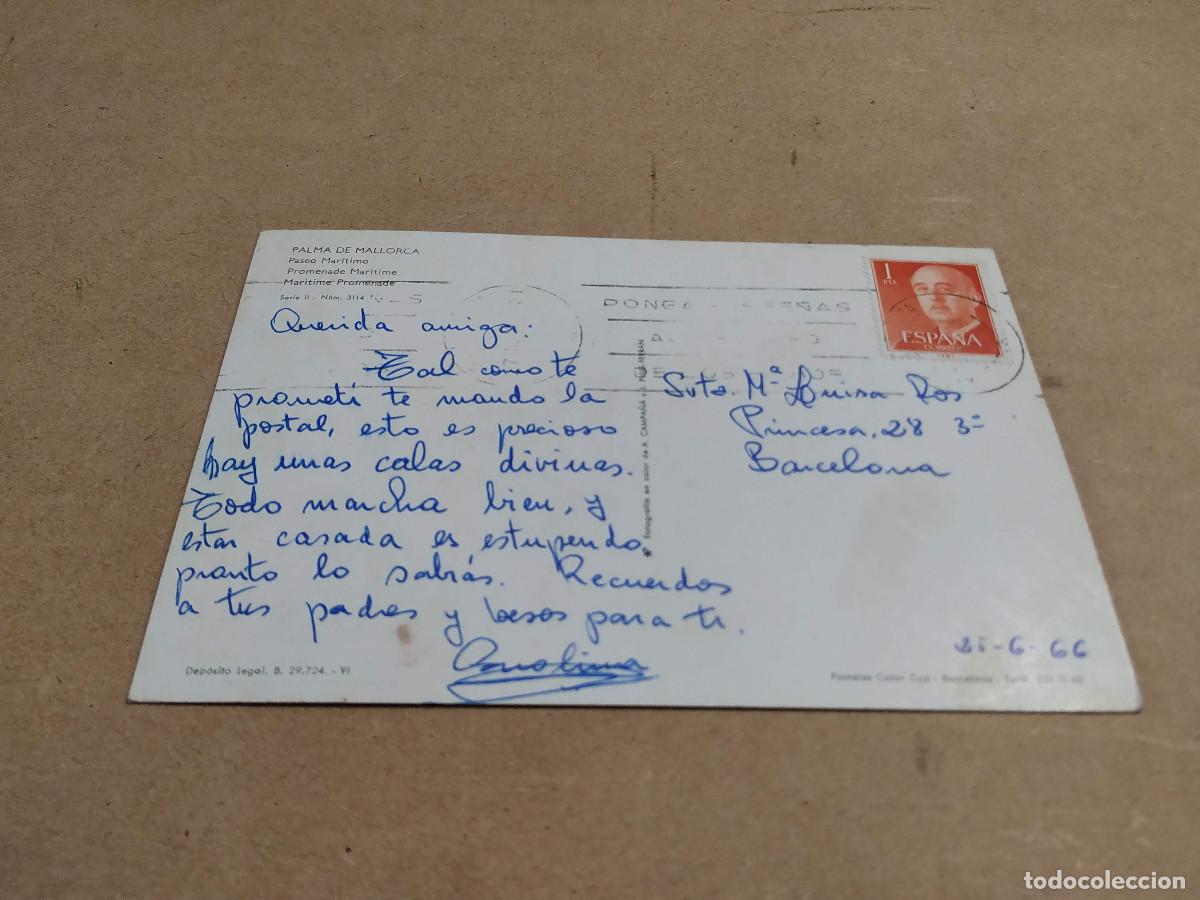 PALMA DE MALLORCA
Paseo Marítimo
Promenade Maritime
Maritime Promenade
Serie II - Núm. 3114
Querida amiga:
Tal como te
prometí te mando la
postal, esto es precioso
hay unas calas divinas.
Todo marcha bien, y
estar casada es estupendo,
pronto lo sabrás. Recuerdos
a tus padres y besos para ti.
Carolina
Depósito legal. B. 29.724. - VI
Fotografía en color de A. CAMPAÑA y J. PUIG-FERRÁN
1
PTA
ESPAÑA
CORREOS
Srta. Mª Luisa Ros
Princesa, 28 3º
Barcelona
21-6-66
Postales Color Cyp - Barcelona
todocoleccion